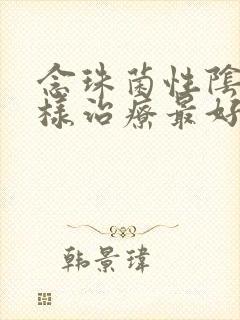 念珠菌性陰
樣治療最好
韩景瑋